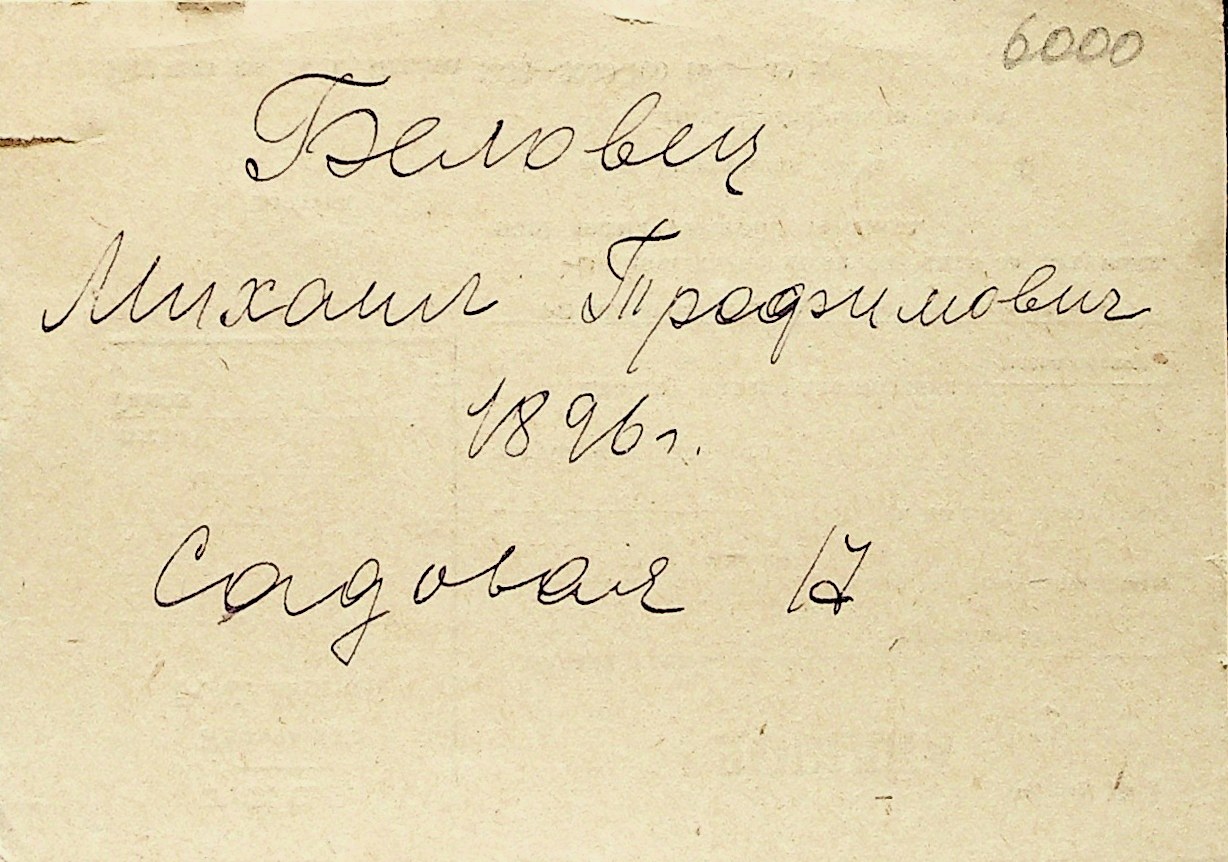 6000
Беловец
Михаил Трофимович
1896 г.
Садовая 17